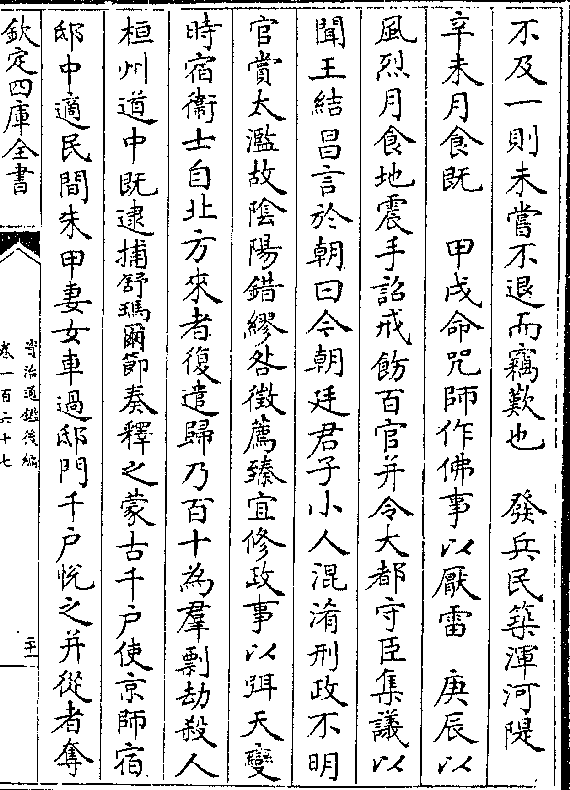 不及一則未嘗不退而竊歎也　發兵民築渾河隄
辛未月食既　甲戌命咒師作佛事以厭雷　庚辰以
風烈月食地震手詔戒飭百官并令大都守臣集議以
聞王結昌言於朝曰今朝廷君子小人混淆刑政不明
官賞太濫故陰陽錯繆咎徵薦臻宜修政事以弭天變
時宿衞士自北方來者復遣歸乃百十為羣剽劫殺人
桓州道中既逮捕舒瑪爾節奏釋之蒙古千戶使京師宿
邸中適民間朱甲妻女車過邸門千戶悅之并從者奪
欽定四庫全書
資治通鑑後編
卷一百六十七
二十一